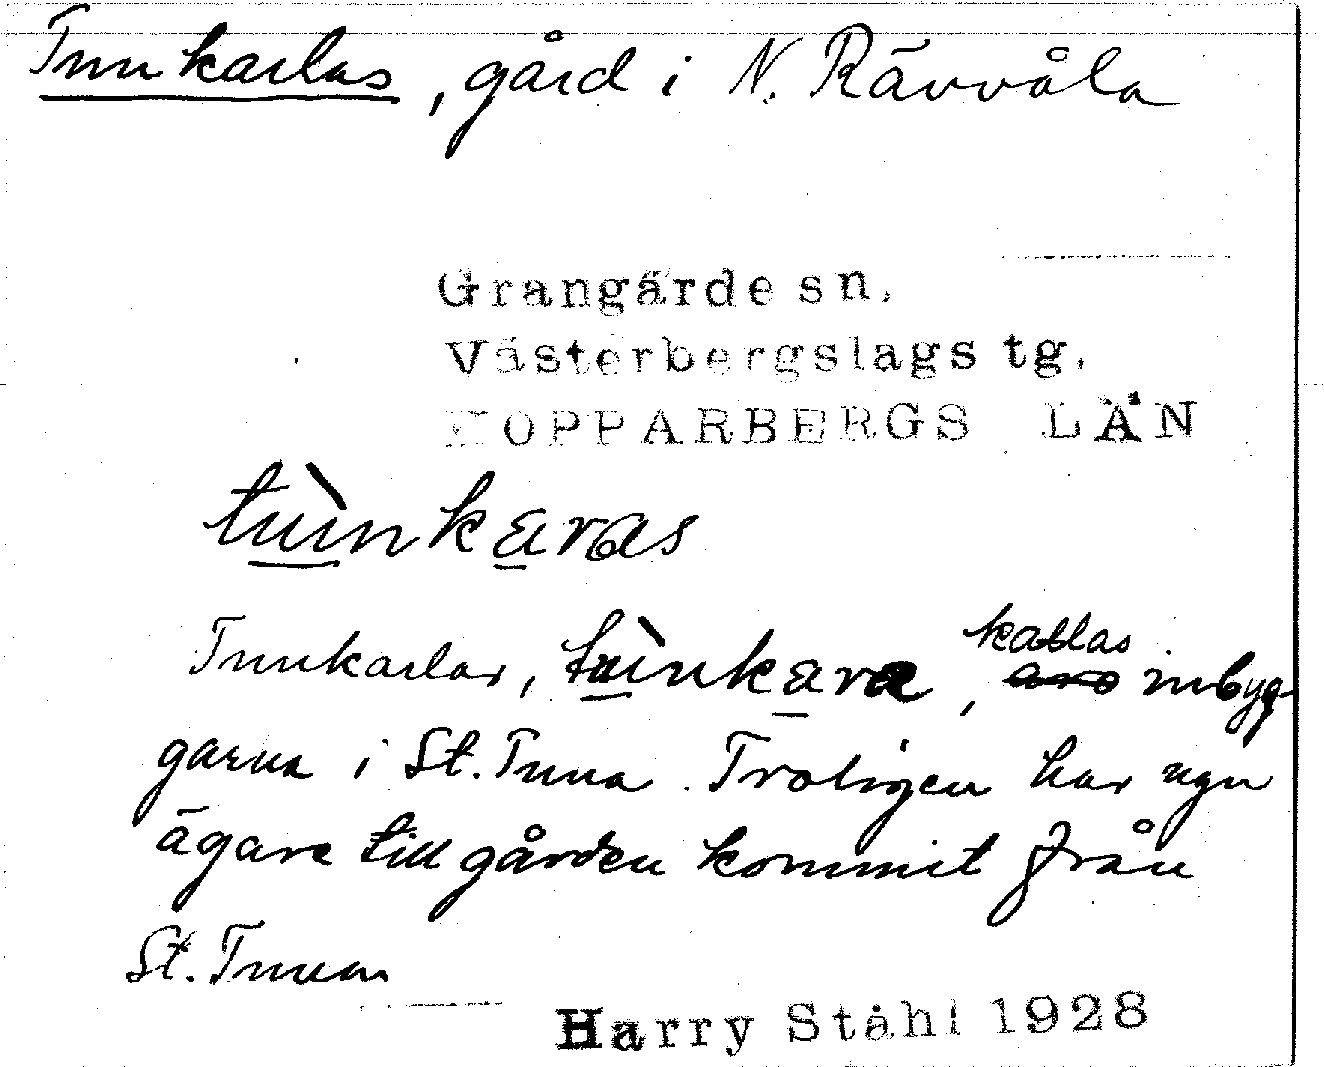 Tunkarlas, gård i N. Rävvåla
Grangärde sn.
Västerbergslags tg.
KOPPARBERGS LÄN
tùnkaras
Tunkarlar, tùnkara, kallas inbyg
garna i St. Tuna. Troligen har ngn
ägare till gården kommit från
St. Tuna
Harry Ståhl 1928